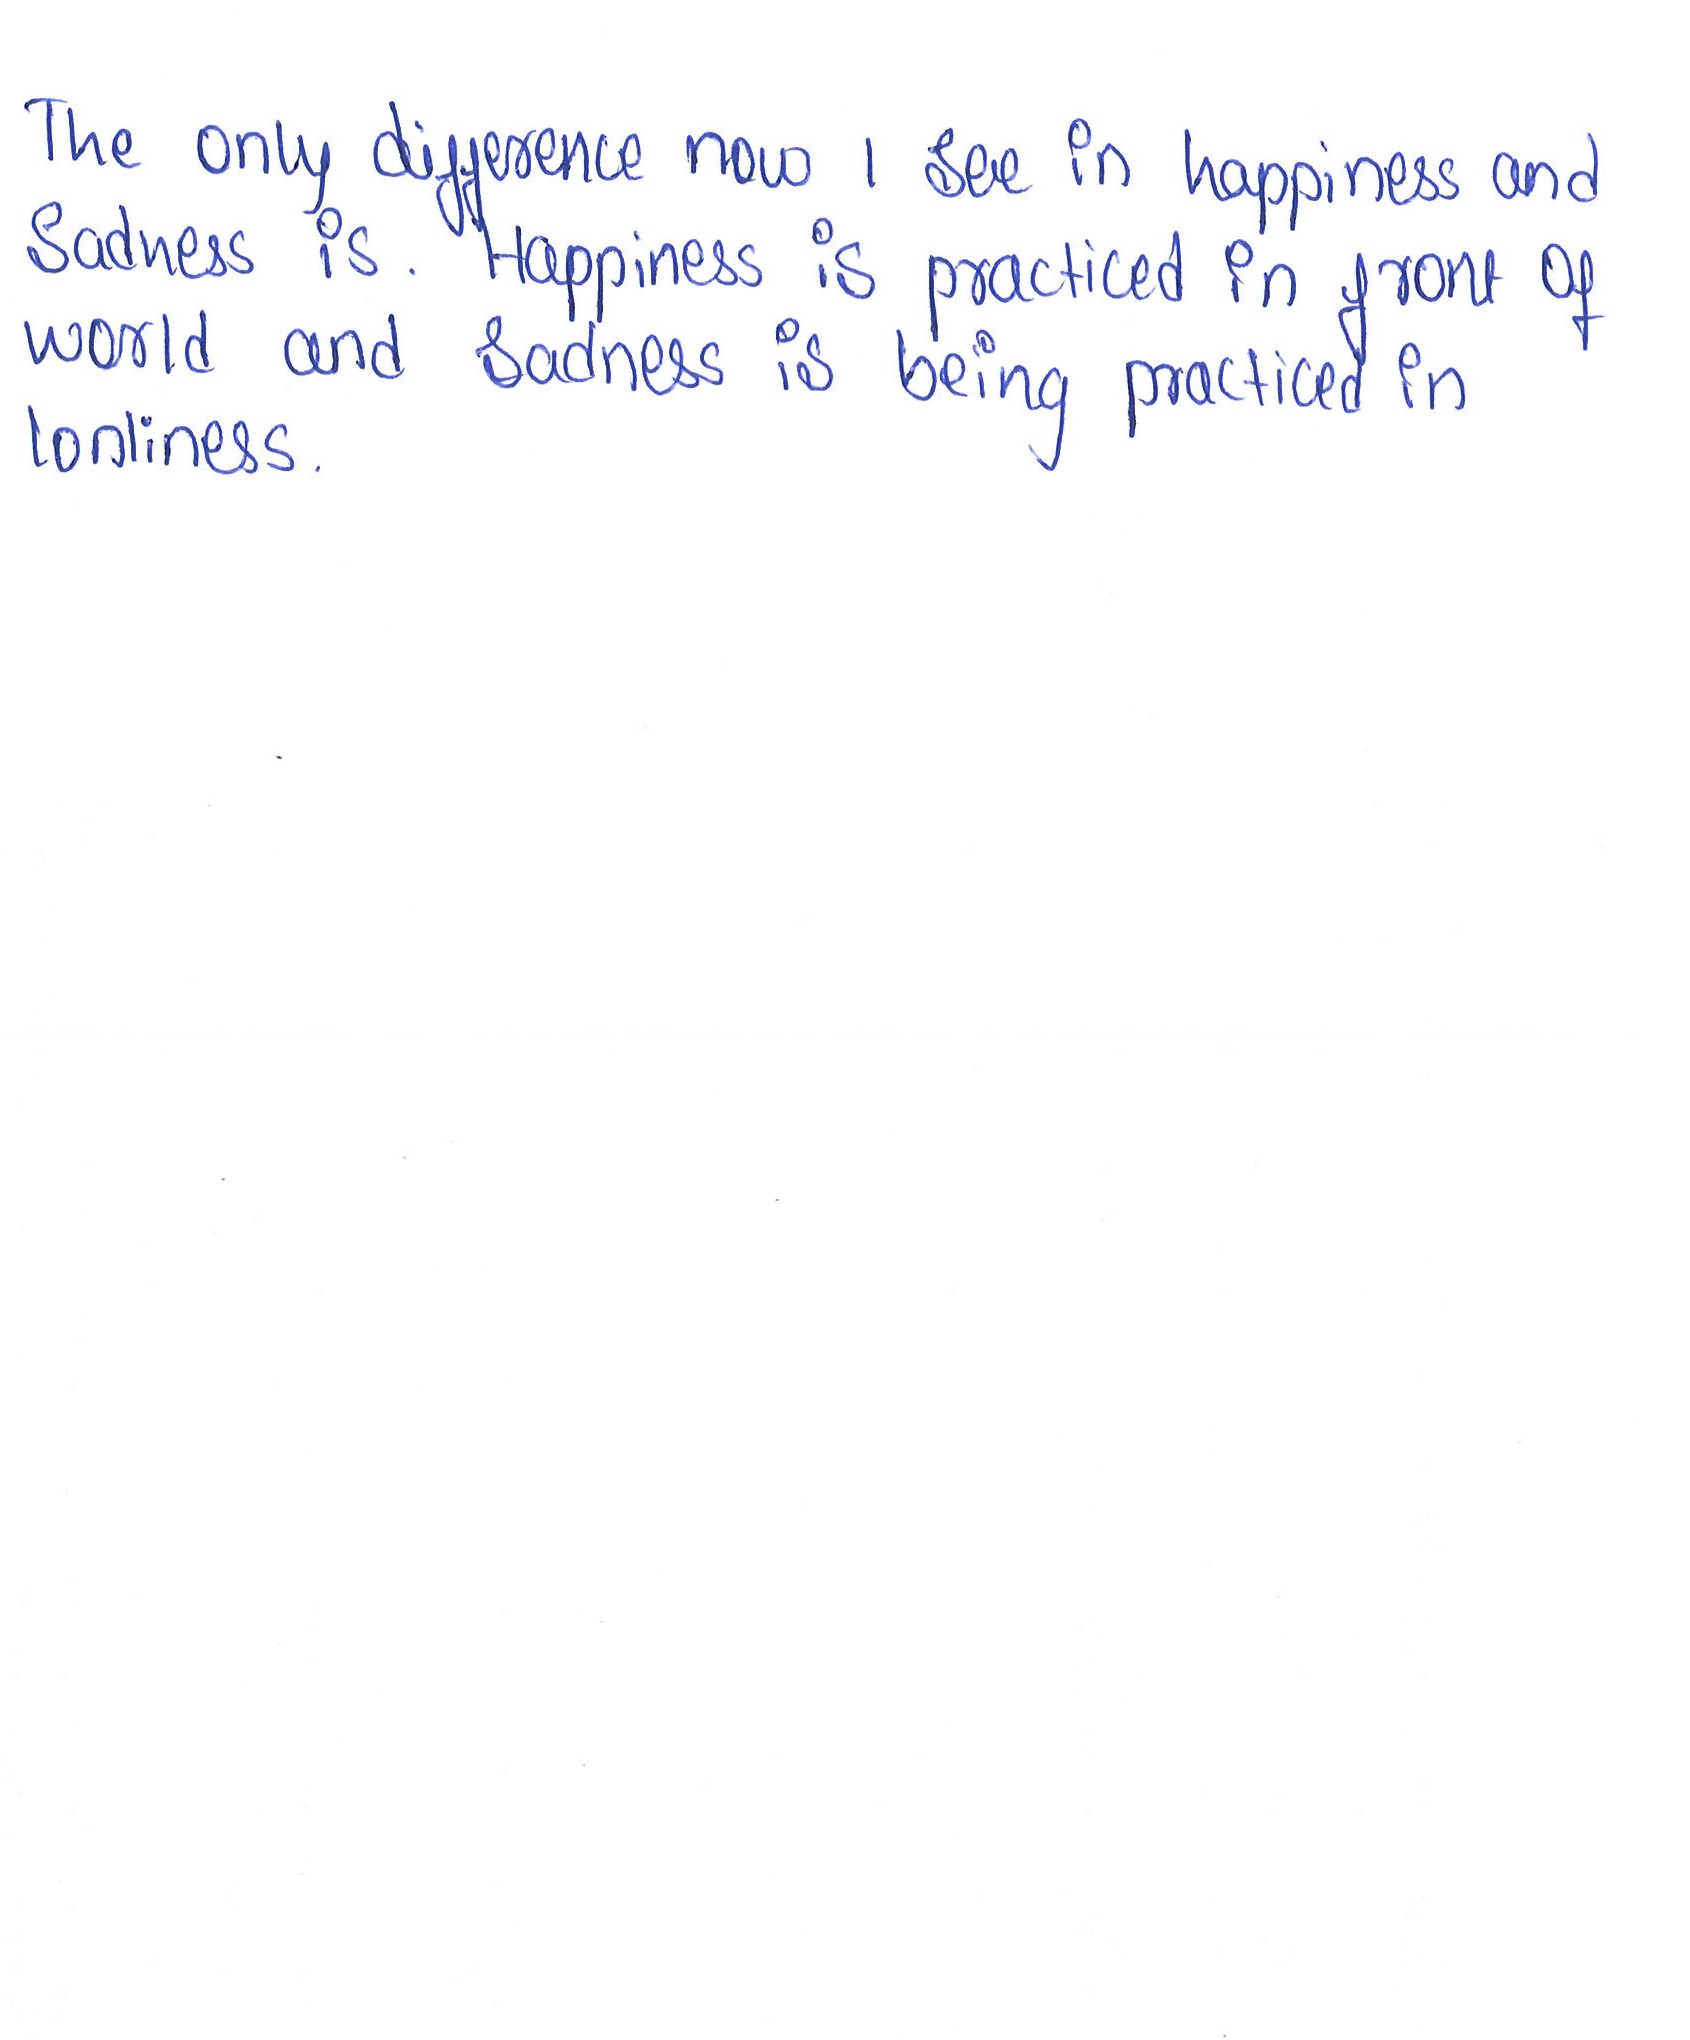 The only difference now I see in happiness and
Sadness is. Happiness is practiced in front of
world and Sadness is being practiced in
lonliness.